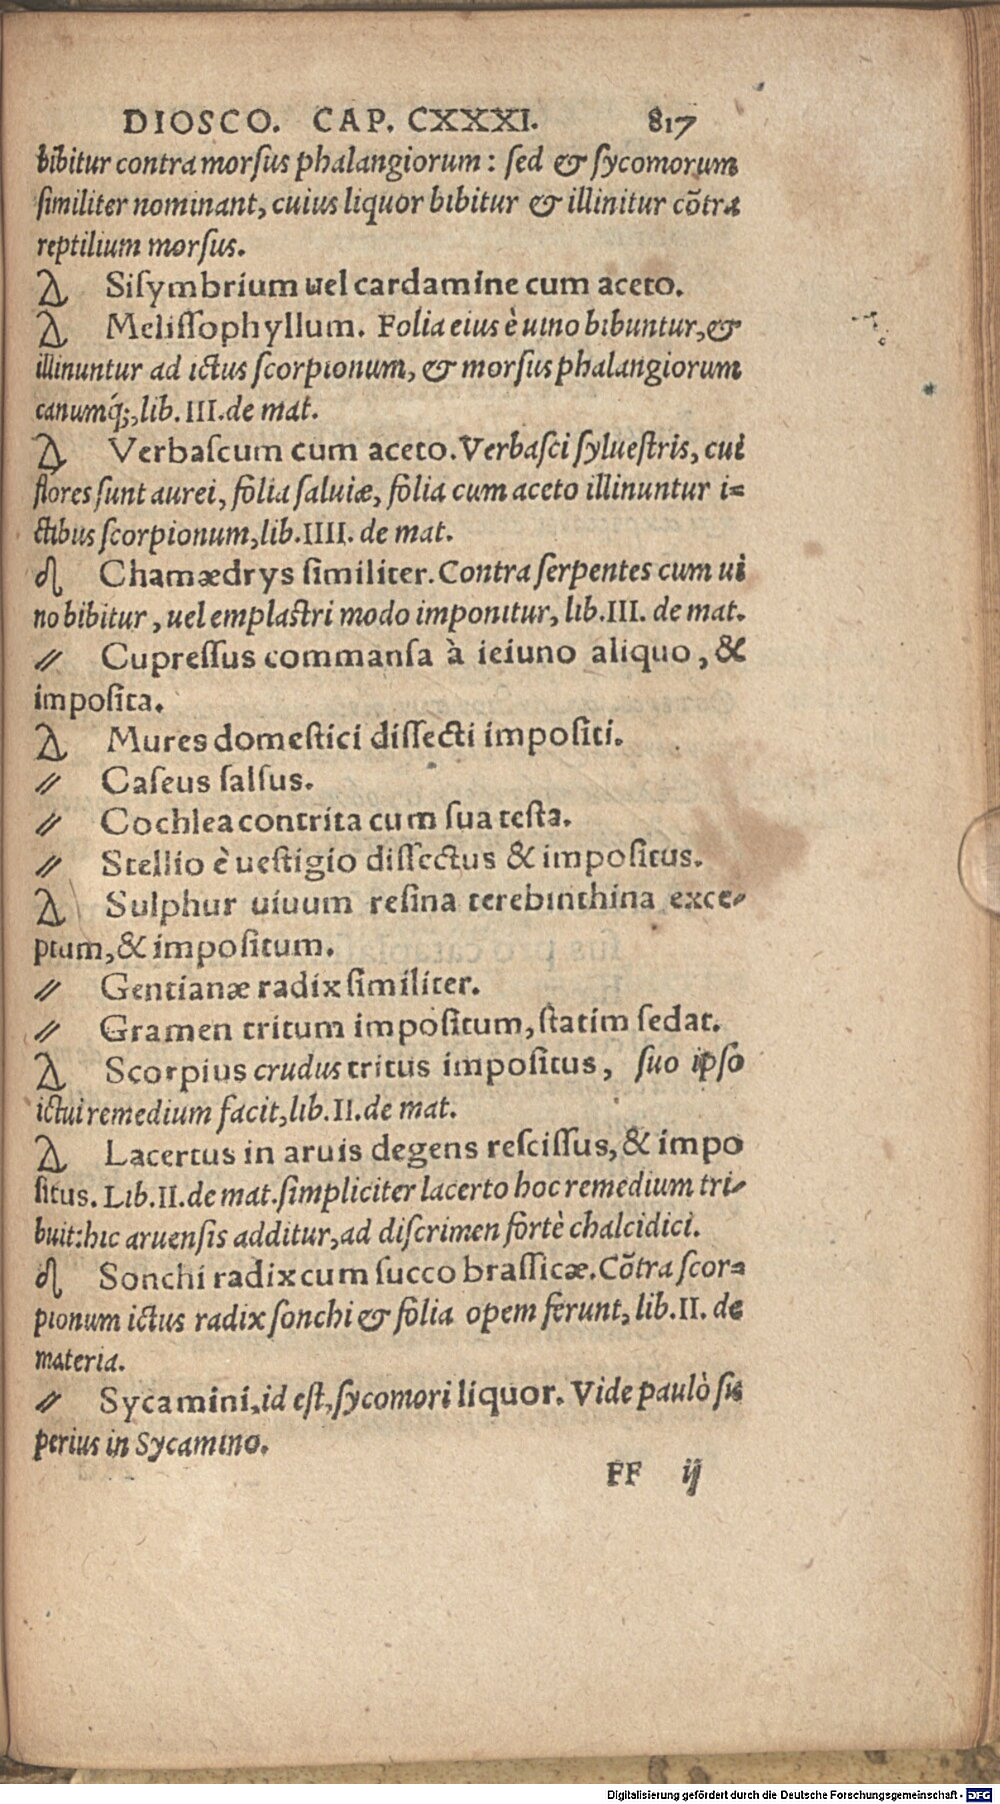 DIOSCO. CAP. CXXXI. 817
bibitur contra morſus phalangiorum: ſed & ſycomorum
ſimiliter nominant, cuius liquor bibitur & illinitur cõtra
reptilium morſus.
Siſymbrium uel cardamine cum aceto.
Meliſſophyllum. Folia eius è uino bibuntur, &
illinuntur ad ictus ſcorpionum, & morſus phalangiorum
canumq́;, lib. III. de mat.
Verbaſcum cum aceto. Verbaſci ſylueſtris, cui
flores ſunt aurei, folia ſaluiæ, folia cum aceto illinuntur i=
ctibus ſcorpionum, lib. IIII. de mat.
Chamædrys ſimiliter. Contra ſerpentes cum ui
no bibitur, uel emplaſtri modo imponitur, lib. III. de mat.
Cupreſſus commanſa à ieiuno aliquo, &
impoſita.
Mures domeſtici diſſecti impoſiti.
Caſeus ſalſus.
Cochlea contrita cum ſua teſta.
Stellio è ueſtigio diſſectus & impoſitus.
Sulphur uiuum reſina terebinthina exce-
ptum, & impoſitum.
Gentianæ radix ſimiliter.
Gramen tritum impoſitum, ſtatim ſedat.
Scorpius crudus tritus impoſitus, ſuo ipſo
ictui remedium facit, lib. II. de mat.
Lacertus in aruis degens reſciſſus, & impo
ſitus. Lib. II. de mat. ſimpliciter lacerto hoc remedium tri-
buit: hic aruenſis additur, ad diſcrimen fortè chalcidici.
Sonchi radix cum ſucco braſſicæ. Cõtra ſcor=
pionum ictus radix ſonchi & folia opem ferunt, lib. II. de
materia.
Sycamini, id eſt, ſycomori liquor. Vide paulò ſu
perius in Sycamino.
FF ij
Digitalisierung gefördert durch die Deutsche Forschungsgemeinschaft - DFG